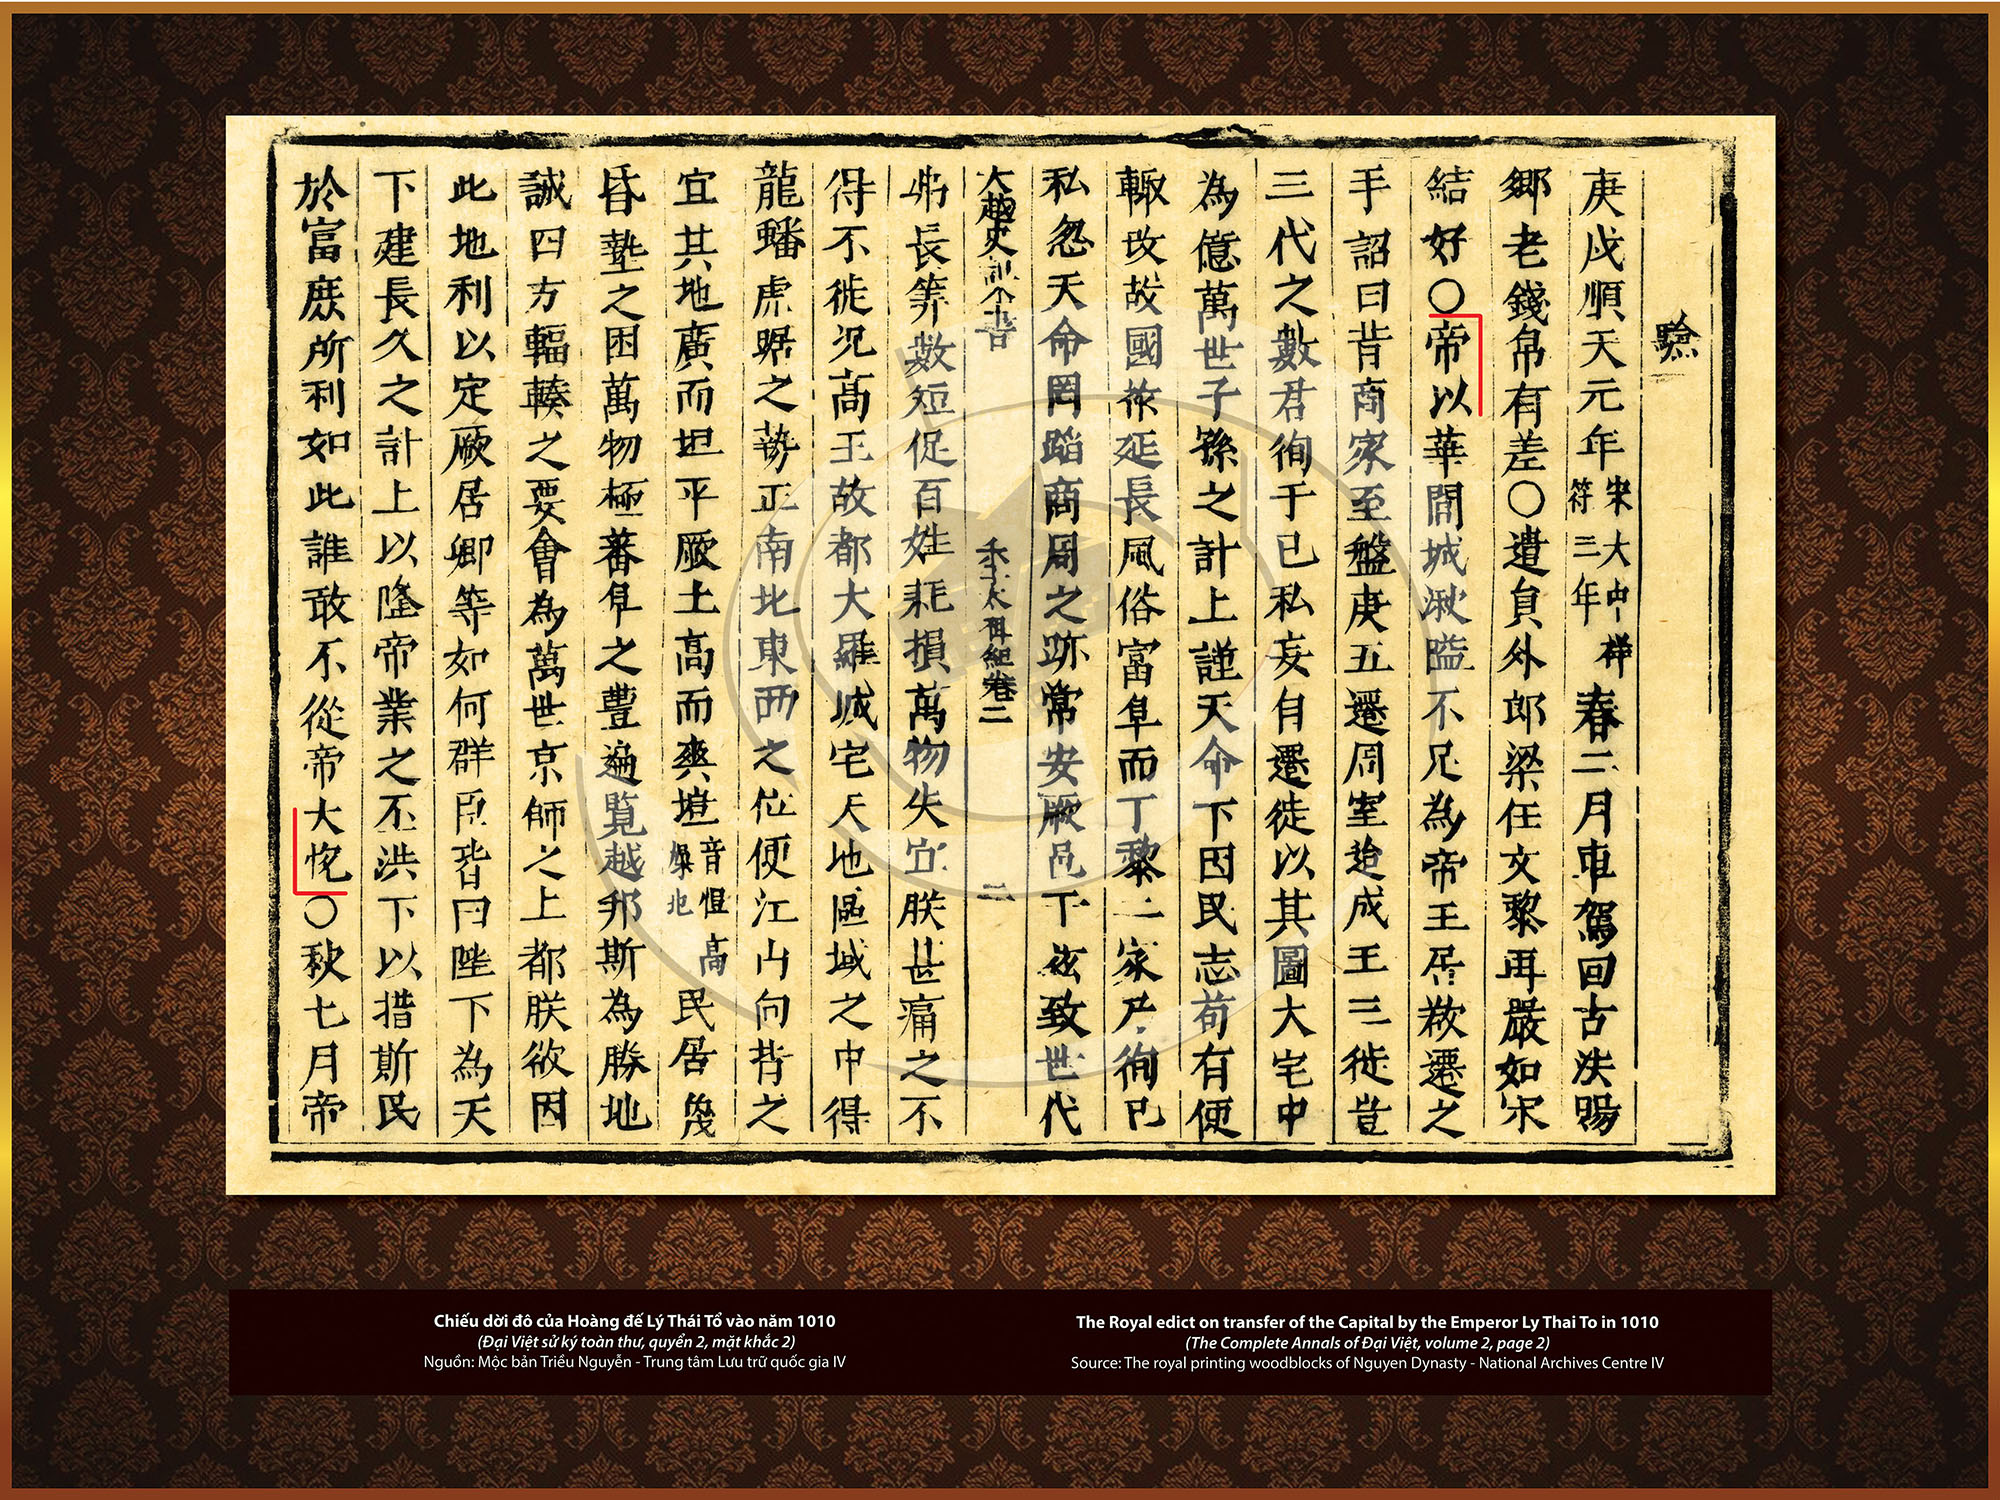 驗
庚戌順天元年宋大中祥符三年春二月車駕回古法賜
鄉老錢帛有差○遣員外郎梁任文黎再嚴如宋
結好○帝以華閭城湫隘不足為帝王居欲遷之
手詔曰昔商家至盤庚五遷周室迨成王三徙豈
三代之數君徇于己私妄自遷徙以其圖大宅中
為億萬世子孫之計上謹天命下因民志苟有便
輒改故國祚延長風俗富阜而丁黎二家乃徇己
私忽天命罔蹈商周之跡常安厥邑于茲致世代
大越史記全書 李太祖紀卷二 二
弗長筭數短促百姓耗損萬物失宜朕甚痛之不
得不徙况高王故都大羅城宅天地區域之中得
龍蟠虎踞之勢正南北東西之位便江山向背之
宜其地廣而坦平厥土高而爽塏音愷高燥地民居蔑
昏墊之困萬物極蕃阜之豊遍覧越邦斯為勝地
誠四方輻輳之要會為萬世京師之上都朕欲因
此地利以定厥居卿等如何群臣皆曰陛下為天
下建長久之計上以隆帝業之丕洪下以措斯民
於富庶所利如此誰敢不從帝大悅○秋七月帝
Chiếu dời đô của Hoàng đế Lý Thái Tổ vào năm 1010
(Đại Việt sử ký toàn thư, quyển 2, mặt khắc 2)
Nguồn: Mộc bản Triều Nguyễn - Trung tâm Lưu trữ quốc gia IV
The Royal edict on transfer of the Capital by the Emperor Ly Thai To in 1010
(The Complete Annals of Đại Việt, volume 2, page 2)
Source: The royal printing woodblocks of Nguyen Dynasty - National Archives Centre IV